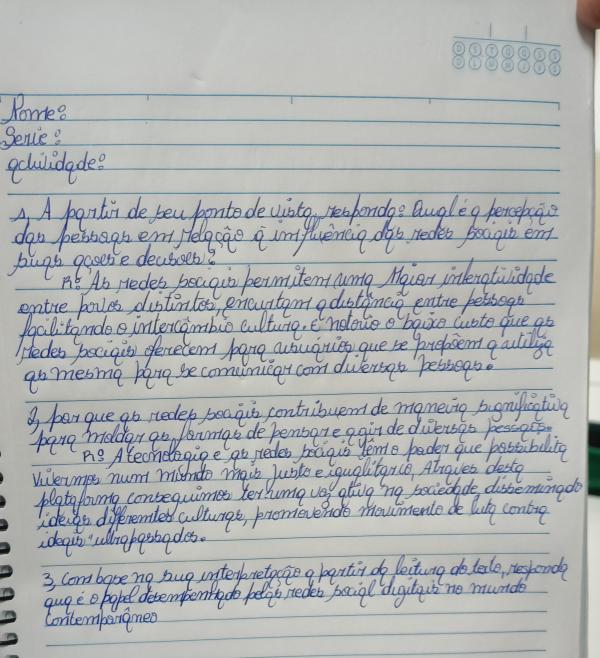 D S T Q Q S S
D L M M J V S
Nome:
Serie:
atividade:
1, A partir de seu ponto de vista, responda: Qual é a percepção
das pessoas em relação a influência das redes sociais em
suas ações e decisões?
R: As redes sociais permitem uma Maior interatividade
entre povos distintos, encurtam a distância entre pessoas
facilitando o intercâmbio cultura. É notório o baixo custo que as
redes sociais oferecem para usuários que se propõem a utiliza
as mesma para se comunicar com diversas pessoas.
2, por que as redes sociais contribuem de maneira significativa
para moldar as formas de pensar e agir de diversas pessoas.
R: A tecnologia e as redes sociais têm o poder que possibilita
vivermos num mundo mais justo e igualitario, Atraves desta
plataforma conseguimos ter uma voz ativa na sociedade, disseminado
ideias diferentes culturas, promovendo movimento de luta contra
ideais "ultrapassados.
3, com base na sua interpretação a partir da leitura do texto, responda
qua é o papel desempenhado pelas redes social digitais no mundo
contemporâneo